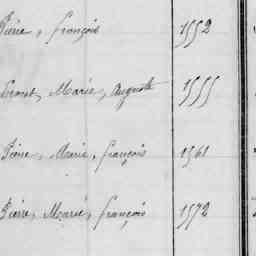 Pierre, François 1552
Ernest, Marie, Auguste 1555
Pierre, Marie, François 1561
Pierre, Marie, François 1572